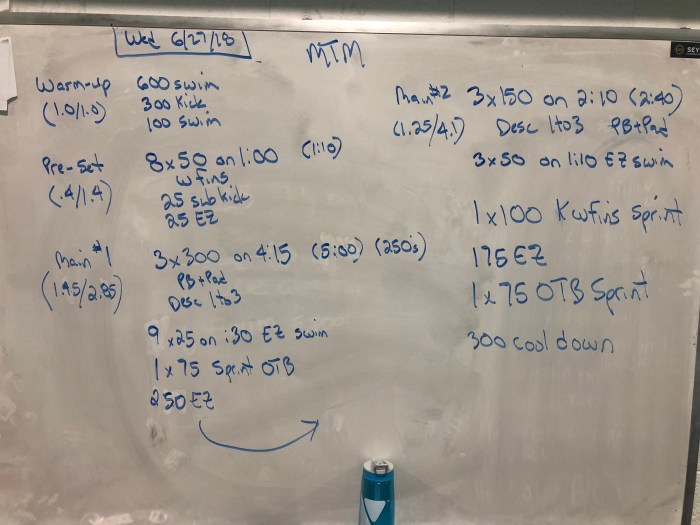 Wed 6/27/18
MTM
Warm-up 600 swim
(1.0/1.0) 300 Kick
100 swim
Pre-Set 8x50 on 1:00 (1:10)
(.4/1.4) w fins
25 sub kick
25 EZ
Main #1 3x300 on 4:15 (5:00) (250's)
(1.45/2.85) PB+Pad
Desc 1to3
9 x25 on :30 EZ swim
1x75 Sprint OTB
250 EZ
Main #2 3x150 on 2:10 (2:40)
(1.25/4.1) Desc 1to3 PB+Pad
3x50 on 1:10 EZ swim
1x100 K w fins sprint
175 EZ
1x75 OTB Sprint
300 cool down
SEY